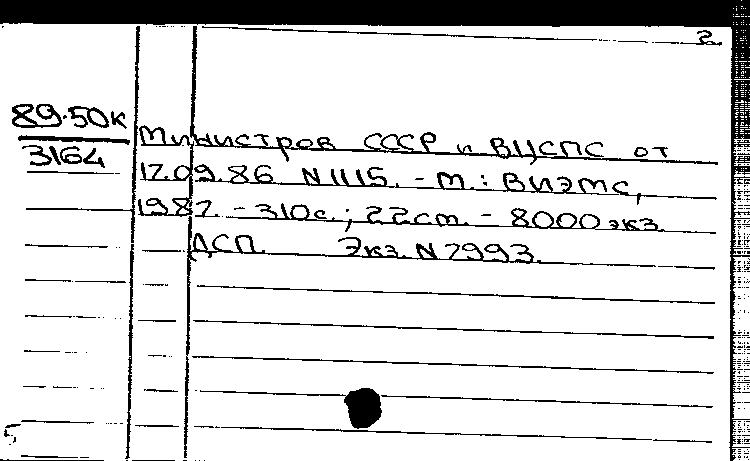 2.
89.50к
3164
Министров СССР и ВЦСПС от
17.09.86 N1115. - М.: ВИЭМС,
1987. - 310с.; 22см. - 8000 экз.
ДСП. Экз. N 7993.
5